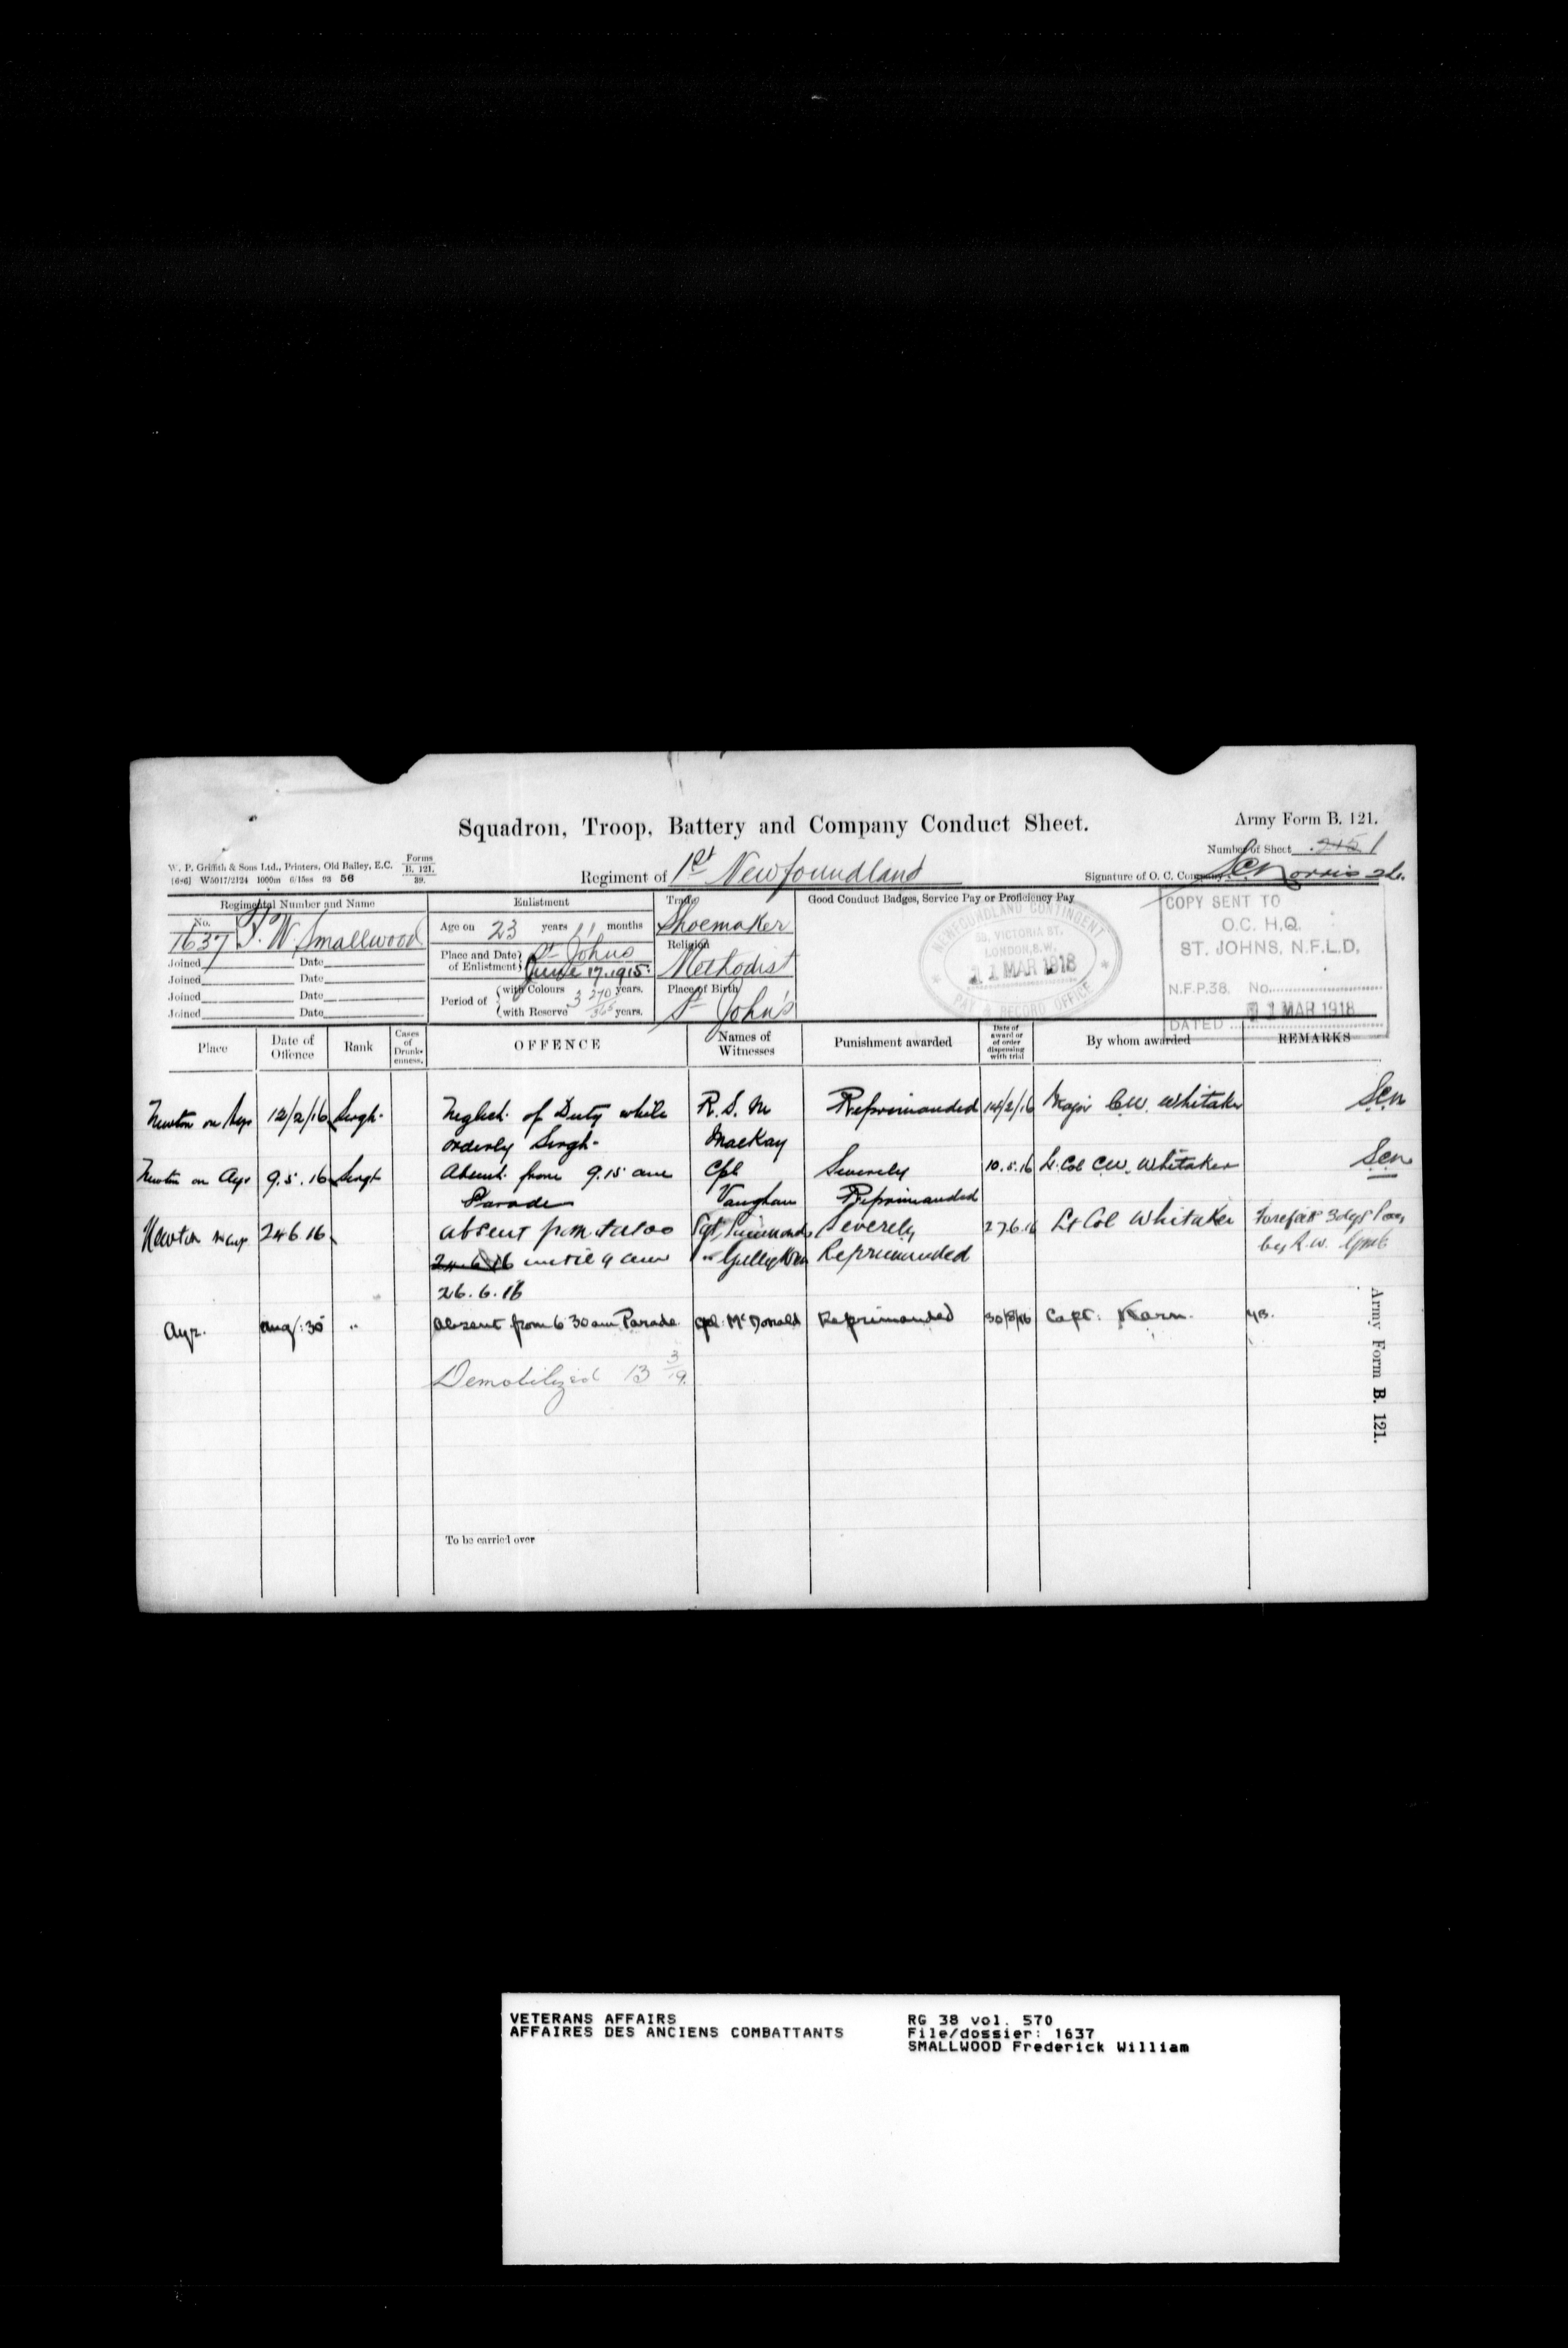 Squadron, Troop, Battery and Company Conduct Sheet.
Army Form B. 121.
Number of Sheet 1
W. P. Griffith & Sons Ltd., Printers, Old Bailey, E.C.
Forms B. 121. 39.
[6+6] W5017/2124 1000m 6/15ss 93 56
Regiment of 1st Newfoundland
Signature of O. C. Company
Regimental Number and Name
No. 1637 F. W Smallwood
Joined Date
Joined Date
Joined Date
Joined Date
Enlistment
Age on 23 years 11 months
Place and Date of Enlistment St Johns June 17. 1915.
Period of with Colours 3 270 years.
with Reserve 365 years.
Trade
Shoemaker
Religion
Methodist
Place of Birth
St John's
Good Conduct Badges, Service Pay or Proficiency Pay
NEWFOUNDLAND CONTINGENT
58, VICTORIA ST.
LONDON, S.W.
11 MAR 1918
PAY & RECORD OFFICE
COPY SENT TO
O.C. H.Q.
ST. JOHNS, N.F.L.D,
N.F.P.38. No.
DATED 11 MAR 1918
Place Date of Offence Rank Cases of Drunkenness. OFFENCE Names of Witnesses Punishment awarded Date of award or of order dispensing with trial By whom awarded REMARKS
Newton on Ayr 12/2/16 Sergt. Neglect of Duty while R. S. M Reprimanded 14/2/16 Major C.W. Whitaker SCN
orderly Sergt. MacKay
Newton on Ayr 9.5.16 Sergt Absent from 9.15 am Cpl Severely 10.5.16 Lt. Col C.W. Whitaker SCN
Parade Vaughan Reprimanded
Newton on Ayr 24 6 16 absent from tatoo Sgt Severely 27.6.16 Lt Col Whitaker Forefeit 3 dys Pay
24.6.16 until 9 am Reprimanded by R.W.
26.6.16
Ayr. Aug: 30 " Absent from 6 30 am Parade Cpl. McDonald Reprimanded 30/8/16 Capt: Karn.
Demobilized 13 3/19.
To be carried over
Army Form B. 121.
VETERANS AFFAIRS
AFFAIRES DES ANCIENS COMBATTANTS
RG 38 vol. 570
File/dossier: 1637
SMALLWOOD Frederick William